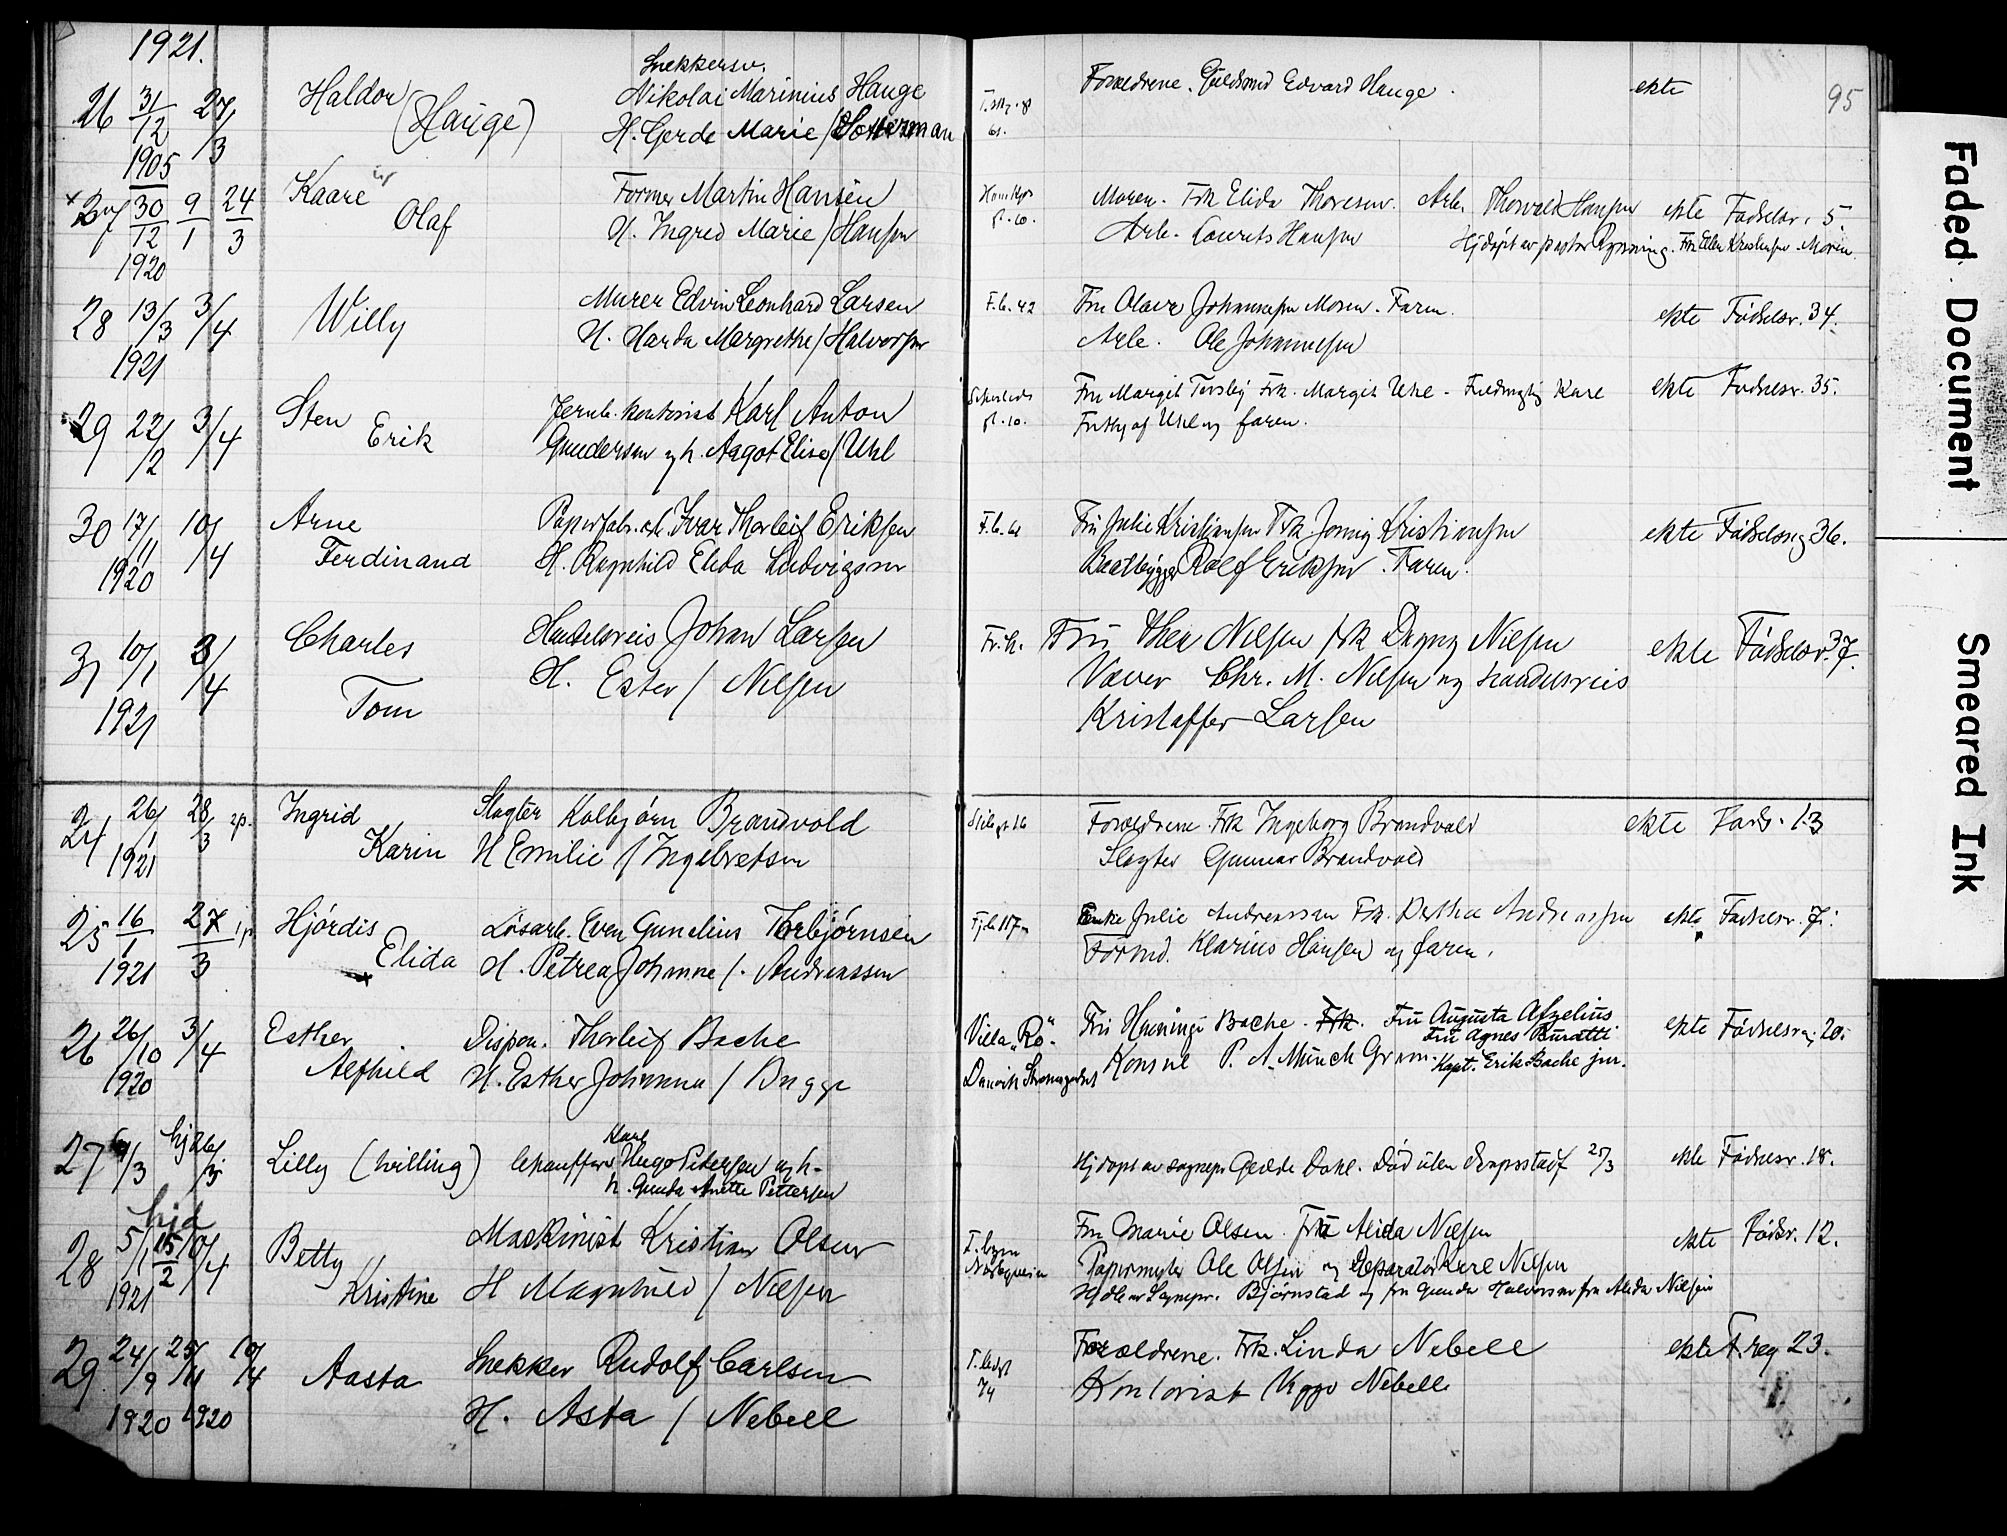 1921.
95
26 31/12 1905 27/3 Haldor (Hauge) Snekkersv. Nikolai Marinius Hauge
H. Gerda Marie /
Forældrene. Guldsmed Edvard Hauge. ekte
27 30/12 1920 9/1 24/3 Kaare Olaf Former Martin Hansen
H. Ingrid Marie / Hansen
Moren. Frk Elida Thoresen. Arb. Thorvald Hansen ekte Fødselsr. 5.
Arb. Laurits Hansen Hjdøpt av pastor
28 13/3 1921 3/4 Willy Murer Edvin Leonhard Larsen
H. Harda Margrethe / Halvorsen
F.b. 42 Fru Olava Johannesen Moren. Faren.
Arb. Ole Johannesen
ekte Fødselsr. 34.
29 22/2 3/4 Sten Erik Jernb. kontorist Karl Anton
Gundersen og h. Aagot Elise / Uhl
Fru Margit Frk. Margit Uhl - Kare
Uhl og faren.
ekte Fødselsr. 35.
30 17/11 1920 10/4 Arne Ferdinand Papirfabr. arb. Ivar Thorleif Eriksen
H. Ragnhild Elida Ludvigsen
Fru Julie Kristiansen Frk. Jenny Kristiansen
Baatbygger Rolf Eriksen. Faren.
ekte Fødselsreg 36.
31 10/1 1921 3/4 Charles Tom Handelsreis Johan Larsen
H. Ester / Nilsen
Fr.h. Fru Thea Nilsen frk Dagny Nilsen
Væver Chr. M. Nilsen og handelsreis
Kristoffer Larsen
ekte Fødselsr. 37.
24 26/1 1921 28/3 2p. Ingrid Karin Slagter Kolbjørn Brandvold
H Emilie / Ingebretsen
Forældrene Frk Ingeborg Brandvold
Slagter Gunnar Brandvold
ekte Føds. 13
25 16/1 1921 27/3 Hjørdis Elida Løsarb. Even Gunelius Torbjørnsen
H. Petrea Johanne /. Andreassen
Enke Julie Andreassen Frk. Berthea Andreassen
Formd. Klarius Hansen og faren.
ekte Fødselsr. 7.
26 26/10 1920 3/4 Esther Alfhild Dispon. Thorleif Bache
H. Esther Johanna / Bugge
Villa "Rø". Danvik
Fru Henninge Bache. Frk. Fru Augusta Afzelius
Fru Agnes Buratti
Konsul P. A. Münch Gram. Kapt. Erik Bache jun.
ekte Fødselsreg. 20.
27 /3 hjd 26/3 Lilly (tvilling) Chauffør Karl Hugo Petersen og h.
H. Gunda Anette Pettersen
Hjdøpt av sognepr Gerde Dahl. Død uten daapsstadf 25/3 ekte Fødselsr. 18.
28 5/1 1921 hjd 15/2 10/4 Betty Kristine Maskinist Kristian Olsen
H Magnhild / Nilsen
Fru Marie Olsen. Fru Alida Nilsen
Papirmester Ole Olsen og Reparatør Karl Nilsen
Hjdø av Sognepr. Bjørnstad og fru Gunda Halvorsen fru Alida Nilsen
ekte Fødsr. 12.
29 24/9 1920 25/11 1920 10/4 Aasta Snekker Rudolf Carlsen
H. Asta / Nebell
Forældrene. Frk. Linda Nebell
Kontorist Viggo Nebell
ekte F. reg 23.
Faded Document
Smeared Ink